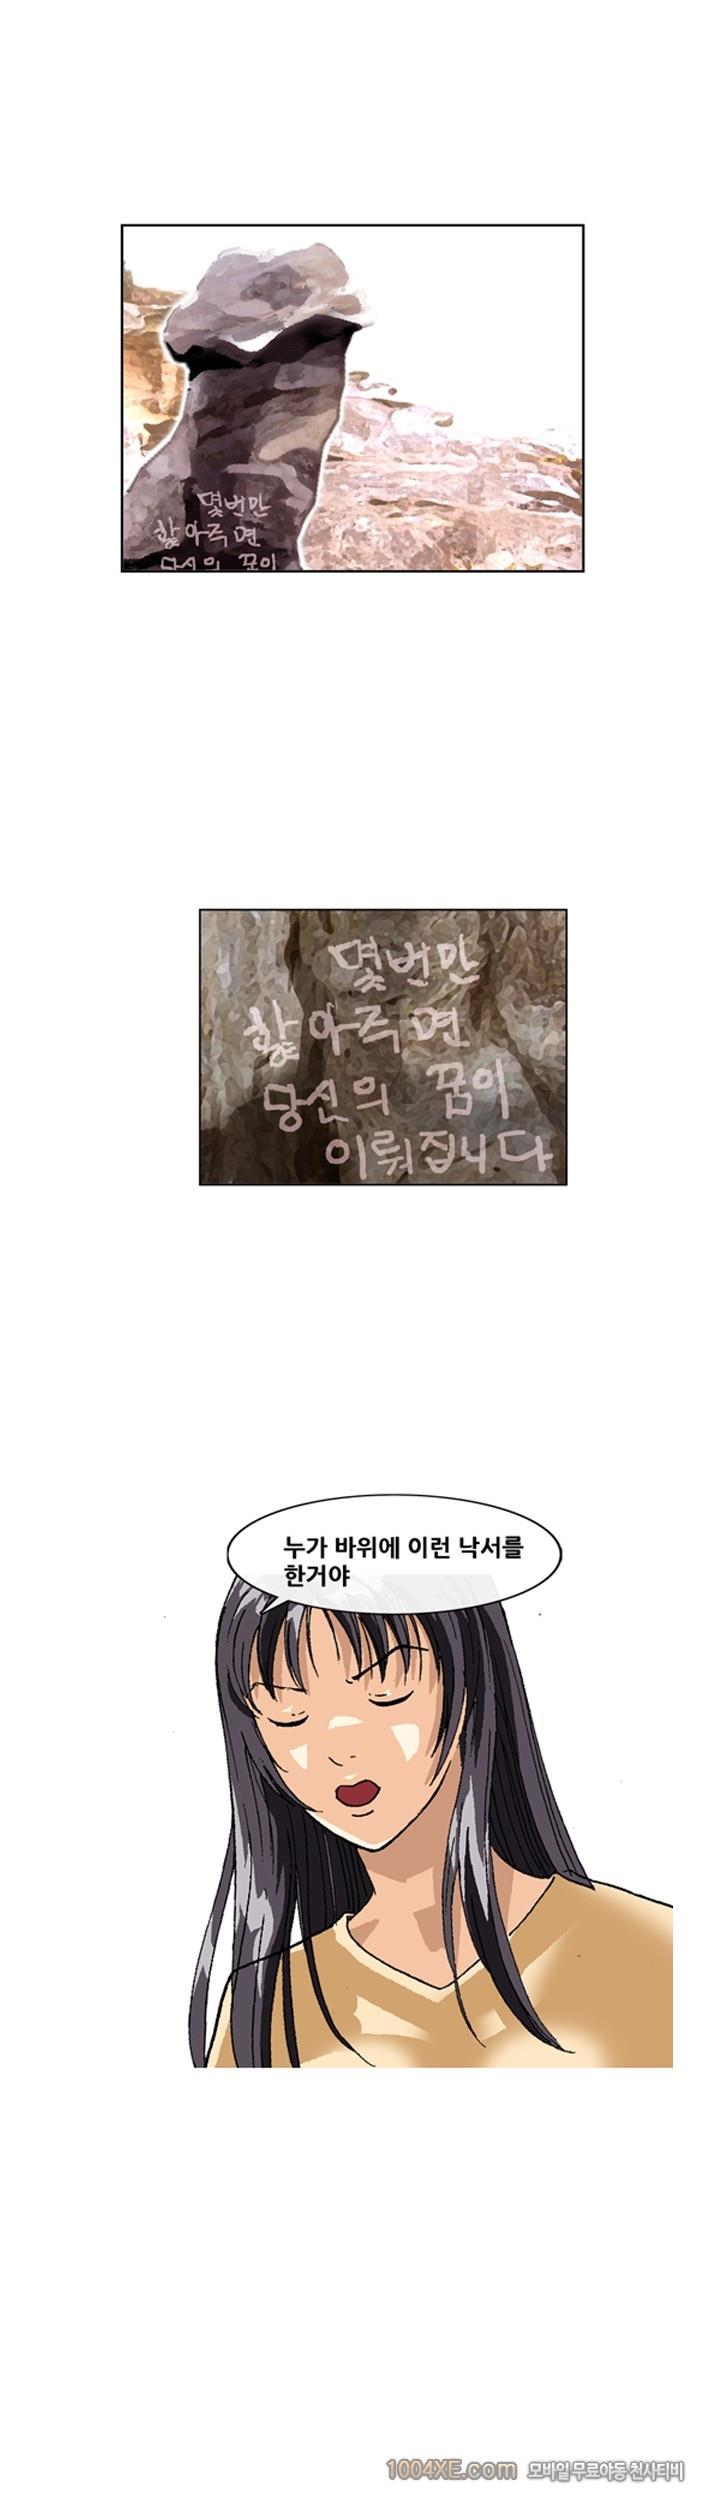 몇번만
핥아주면
당신의 꿈이
몇번만
핥아주면
당신의 꿈이
이뤄집니다
누가 바위에 이런 낙서를
한거야
1004XE.com 모바일 무료야동 천사티비